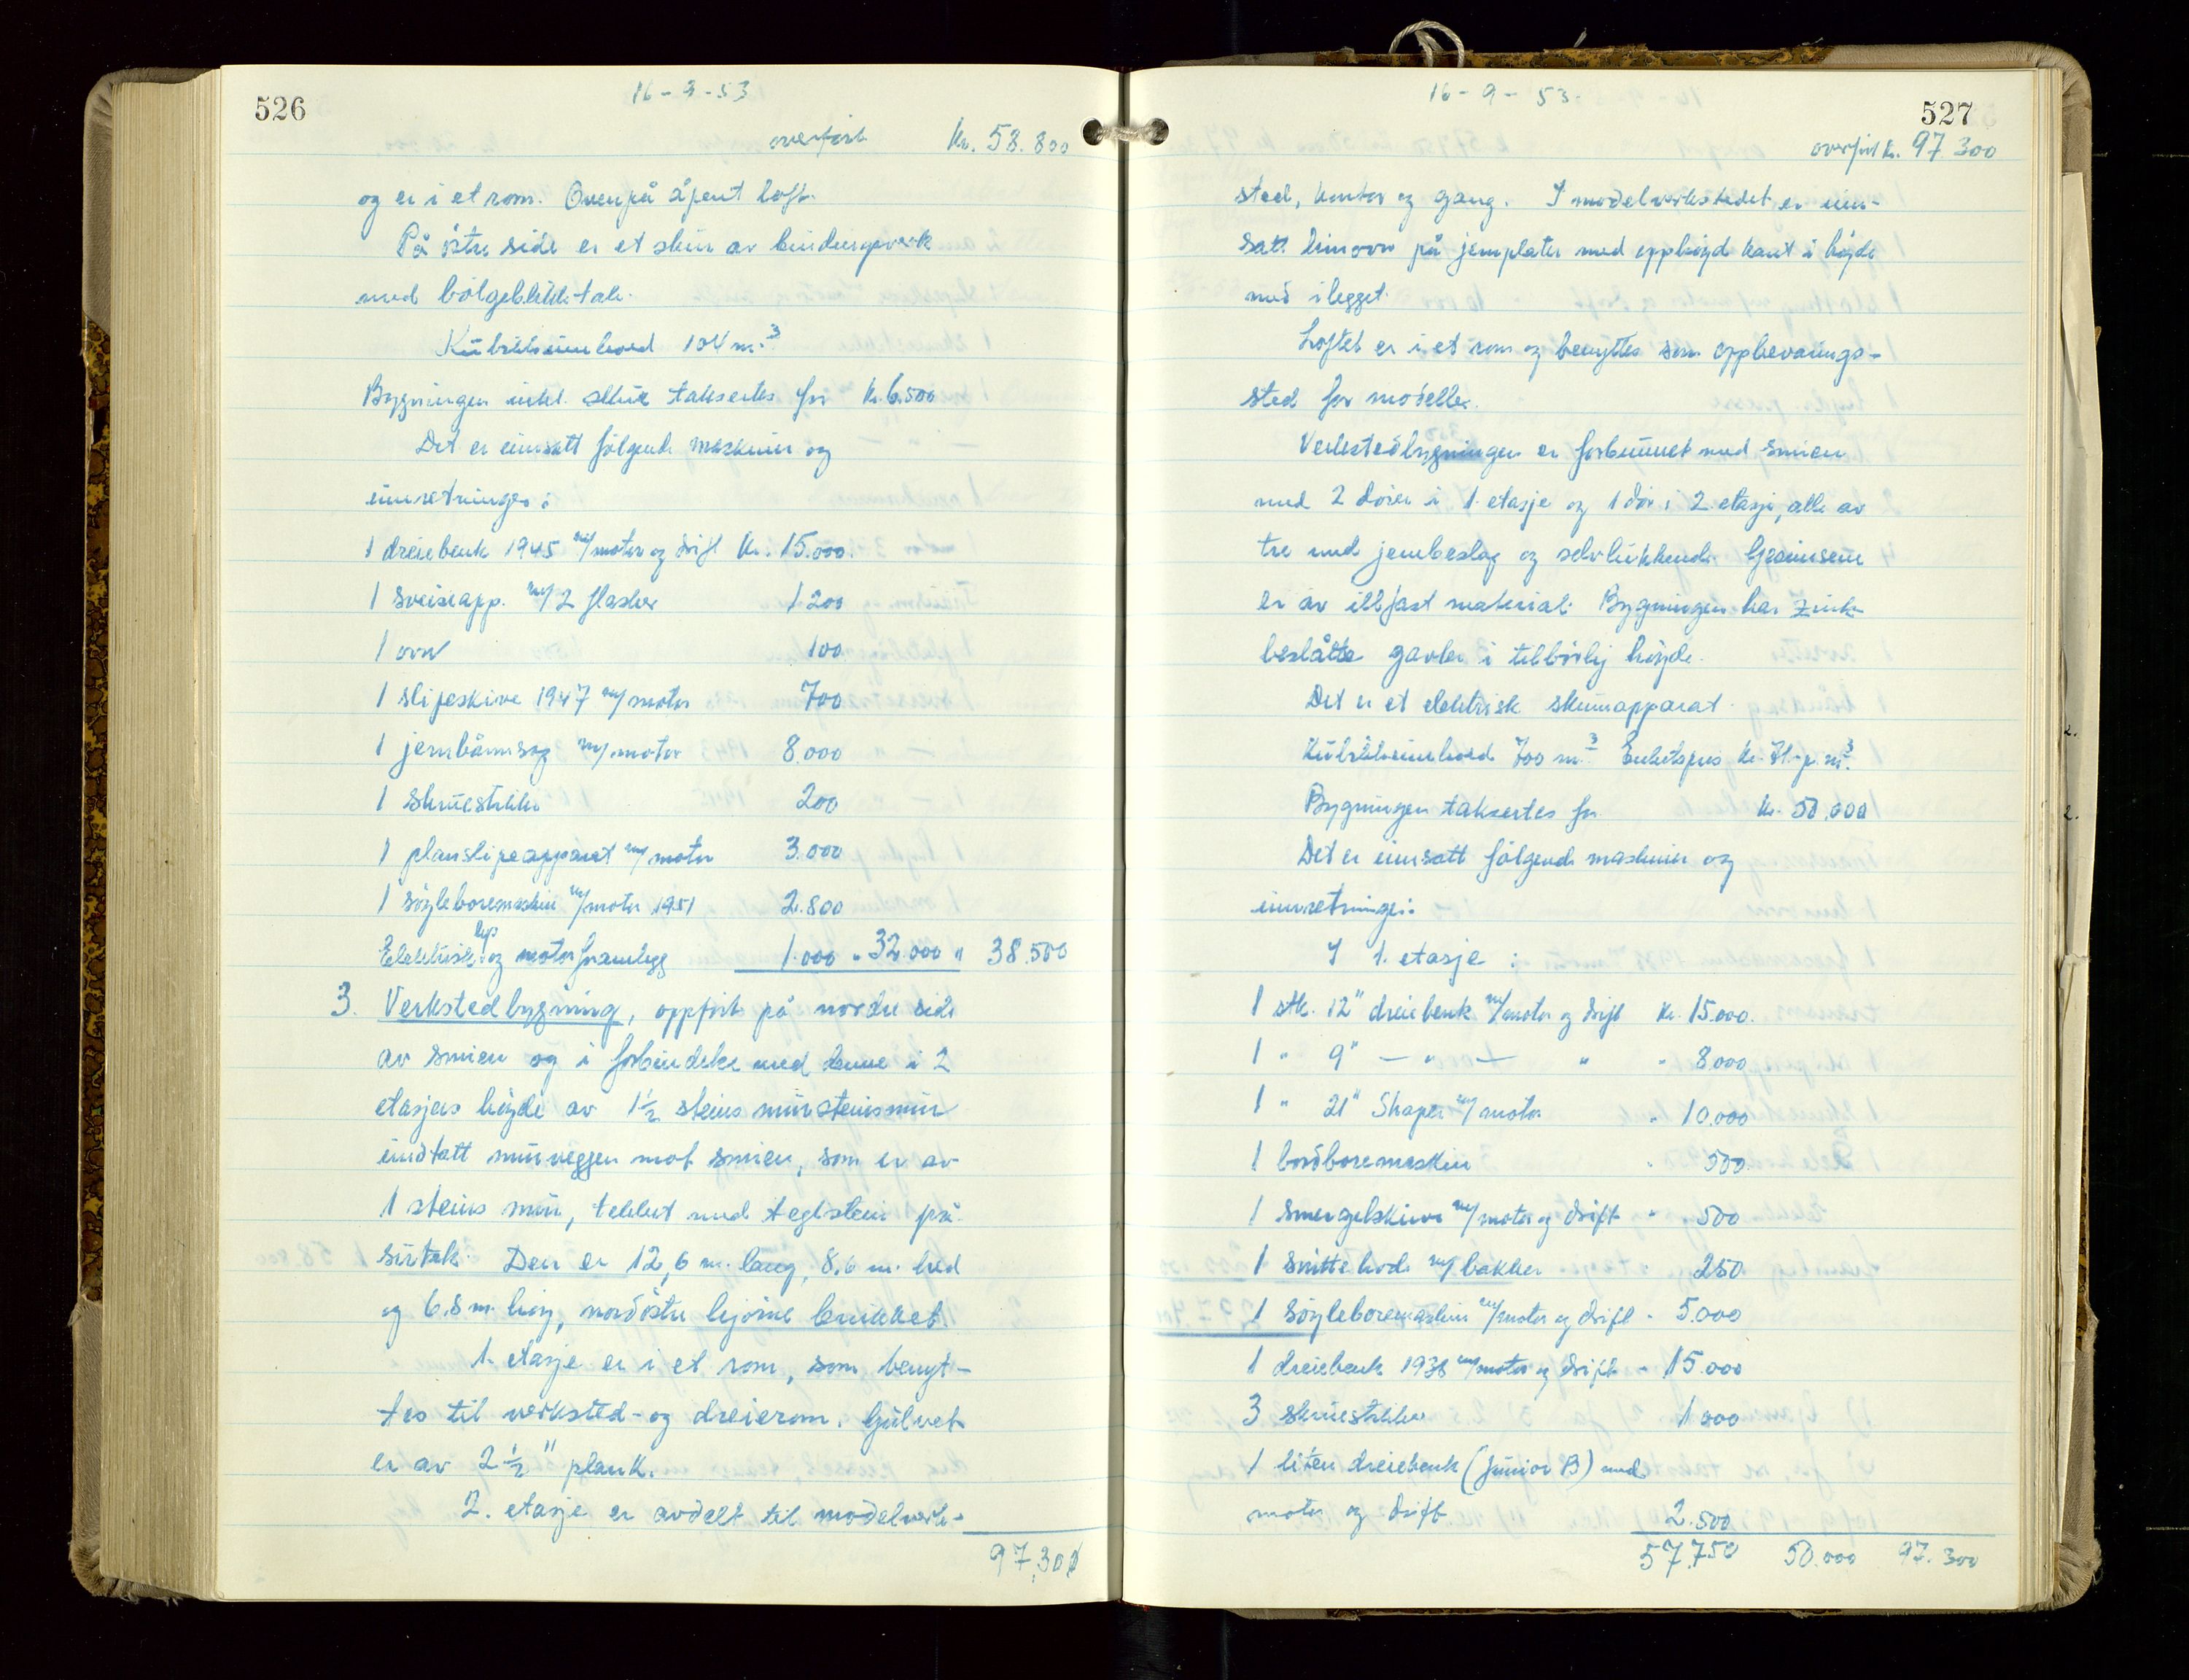 526
16-9-53
overført Kr. 58.800
og er i et rom. Ovenpå åpent loft.
På østre side er et skur av bindingsverk
med bølgeblikktak.
Kubikkinnhold 104 m.³
Bygningen inkl. skur takseres for Kr. 6.500
Det er innsatt følgende maskiner og
innretninger:
1 dreiebenk 1945 m/motor og drift Kr. 15.000.
1 sveiseapp. m/2 flasker 1200
1 ovn 100
1 slipeskive 1947 m/motor 700
1 jernbånnsag m/motor 8.000
1 skruestikke 200
1 planslipeapparat m/motor 3.000
1 søyleboremaskin m/motor 1951 2.800
Elektrisk lys og motorframlegg 1.000 " 32.000 " 38.500
3. Verkstedbygning, oppført på nordre side
av smien og i forbindelse med denne i 2
etasjers høyde av 1½ steins mursteinsmur
undtatt murveggen mot smien, som er av
1 steins mur, tekket med teglstein på
sutak. Den er 12,6 m. lang, 8,6 m. bred
og 6.8 m. høy, nordøstre hjørne brukket.
1. etasje er i et rom, som benyt-
tes til verksted- og dreierom. Gulvet
er av 2½" plank.
2. etasje er avdelt til modelverk-
97.300
527
16-9-53.
overført Kr. 97.300
sted, kontor og gang. I modelverkstedet er inn-
satt limovn på jernplater med opphøyd kant i høyde
med ilegget.
Loftet er i et rom og benyttes som oppbevarings-
sted for modeller.
Verkstedbygningen er forbunnet med smien
med 2 dører i 1. etasje og 1 dør i 2. etasje, alle av
tre med jernbeslag og selvlukkende. Gesimsene
er av illfast material. Bygningen har zink-
beslåtte gavler i tilbørlig høyde.
Det er et elektrisk skumapparat.
Kubikkinnhold 700 m.³ Enhetspris Kr. 71.- p. m³.
Bygningen takseres for Kr. 50.000
Det er innsatt følgende maskiner og
innretninger:
I 1. etasje:
1 stk. 12" dreiebenk m/motor og drift Kr. 15.000.
1 " 9" — " — " " 8.000
1 " 21" Shaper m/motor " 10.000
1 bordboremaskin " 500
1 smergelskive m/motor og drift " 500
1 snittehode m/bakker 250
1 søyleboremaskin m/motor og drift - 5.000
1 dreiebenk 1938 m/motor og drift - 15.000
3 skruestikker 1 000
1 liten dreiebenk (Junior B) med
motor og drift 2.500
57.750 50.000 97.300